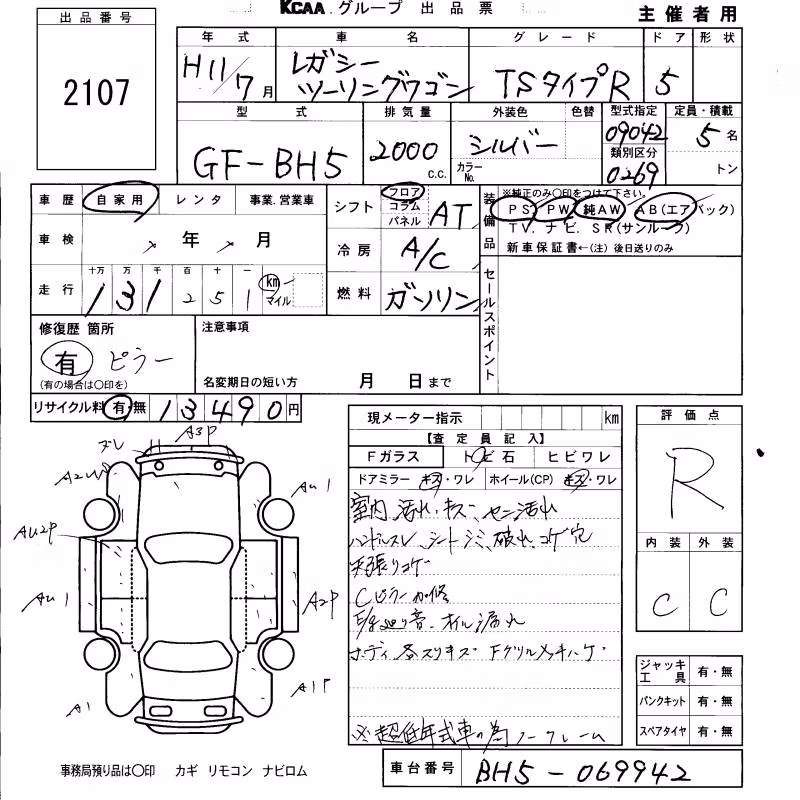 KCAA グループ 出品票
主催者用
出品番号
2107
年式 車名 グレード ドア 形状
H11/7月 レガシー ツーリングワゴン TSタイプR 5
型式 排気量 外装色 色替 型式指定 定員・積載
GF-BH5 2000 c.c. シルバー カラーNo. 09042 5名
類別区分
0269 トン
車歴 自家用 レンタ 事業.営業車
シフト フロア コラム パネル AT
装備品 ※純正のみ〇印をつけて下さい。
PS PW 純AW AB(エアバック)
TV. ナビ. SR(サンルーフ)
新車保証書←(注) 後日送りのみ
車検 年 月
冷房 A/C
セールスポイント
走行 十万 万 千 百 十 一
131251 km マイル
燃料 ガソリン
修復歴 箇所
有 ピラー
(有の場合は〇印を)
注意事項
名変期日の短い方 月 日まで
リサイクル料 有・無 13490円
現メーター指示 km
【査定員記入】
Fガラス トビ石 ヒビワレ
ドアミラー キズ・ワレ ホイール(CP) キズ・ワレ
室内汚れ、キズ、
ハンドルスレ シートシミ、破れ、コゲ穴
天張りコゲ
Cピラー加修
オイル漏れ
ボディ各スリキズ Fグリルメッキハゲ
※超低年式車の為ノークレーム
評価点
R
内装 外装
C C
ズレ A3P
AU1
AU2P
AU1
A2P
A1
A1P
ジャッキ 工具 有・無
パンクキット 有・無
スペアタイヤ 有・無
事務局預り品は〇印 カギ リモコン ナビロム
車台番号 BH5-069942